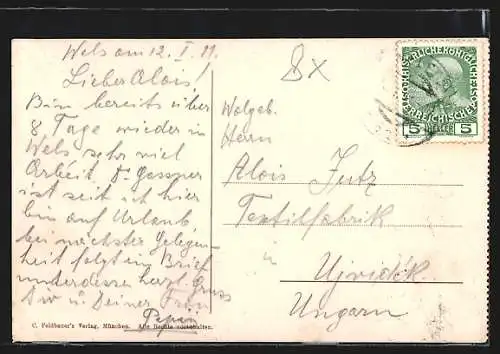 Wels am 12. I. 11.
Lieber Alois!
Bin bereits über
8 Tage wieder in
Wels sehr viel
Arbeit Dr Gessner
ist seit ich hier
bin auf Urlaub
bei nächster Gelegen-
heit folgt ein Brief
unterdessen herzl. Gruss
Dir u. Deiner Frau
Pepi
C. Feldbauer's Verlag, München. Alle Rechte vorbehalten.
8x
Wolgeb.
Herrn
Alois Jutz
Textilfabrik
in
Ujvidék
Ungarn
KAISERLICHE KÖNIGLICHE
ÖSTERREICHISCHE POST
5 HELLER 5